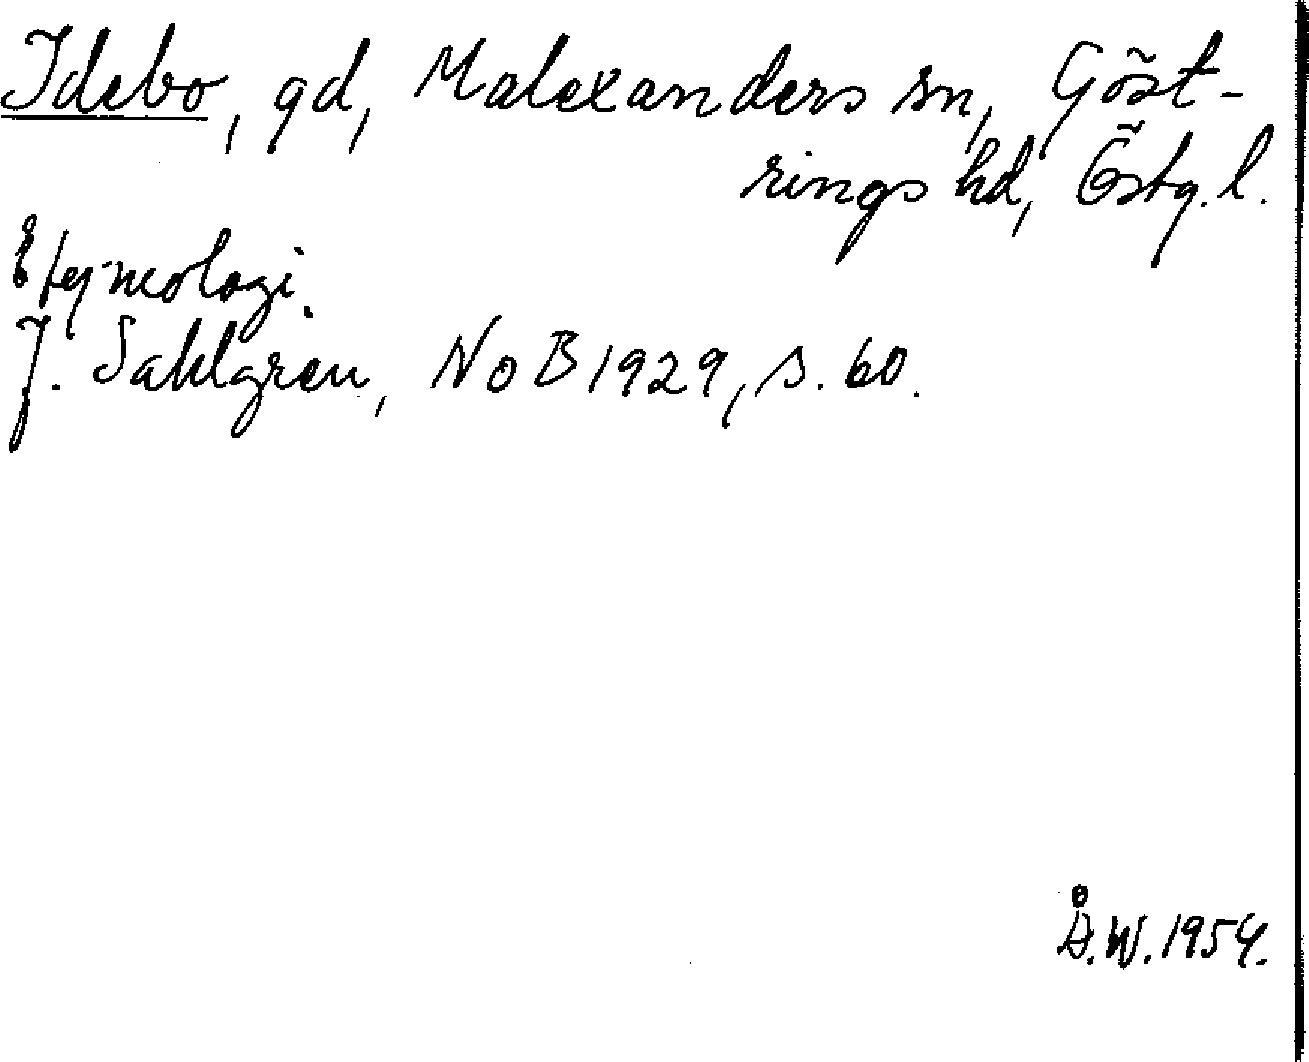 Idebo, gd, Malexanders sn, Göst-
rings hd, Östg. l.
Etymologi.
J. Sahlgren, NoB 1929, s. 60.
Å.W. 1954.